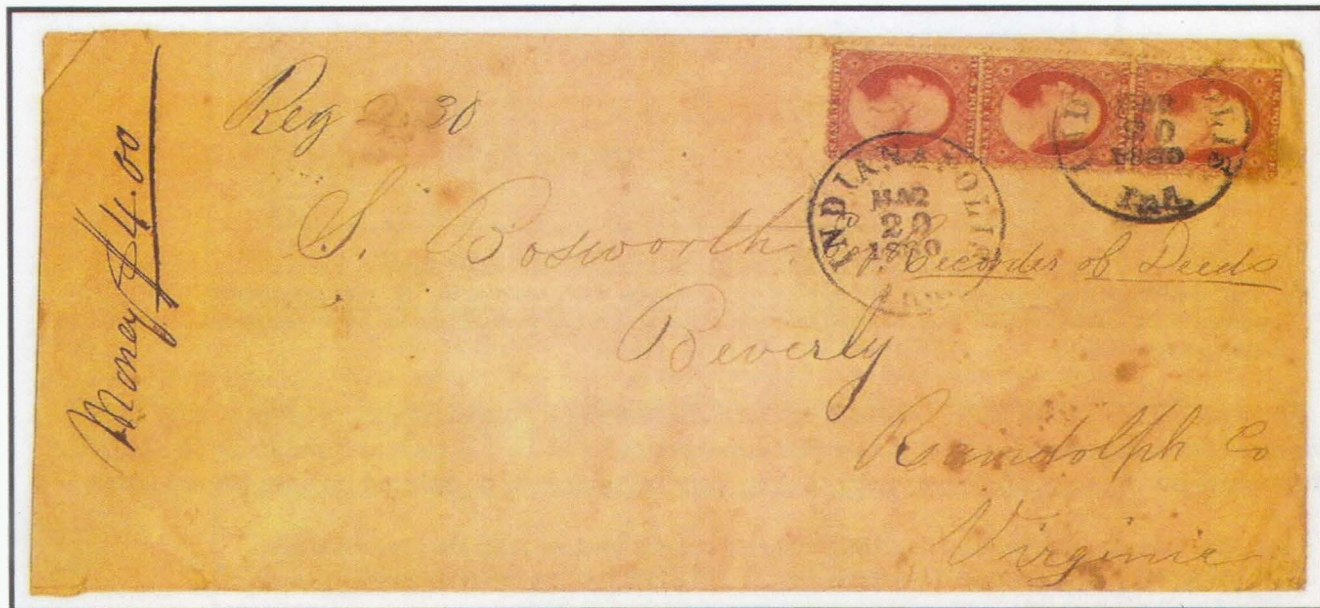 Money $4.00
Reg 30
S. Bosworth Recorder of Deeds
Beverly
Randolph Co
Virginia
INDIANAPOLIS
MAR
20
1860
Ind.